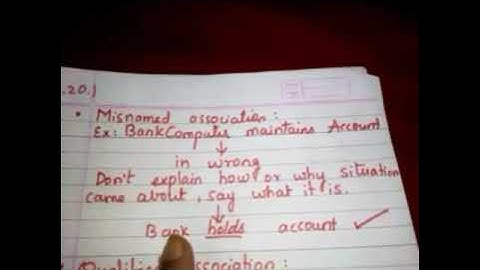 .20.)
• Misnamed association:
Ex: BankComputer maintains Account
↓
in wrong
Don't explain how or why situation
came about, say what it is.
↓
Bank holds account ✓
Qualified Association: